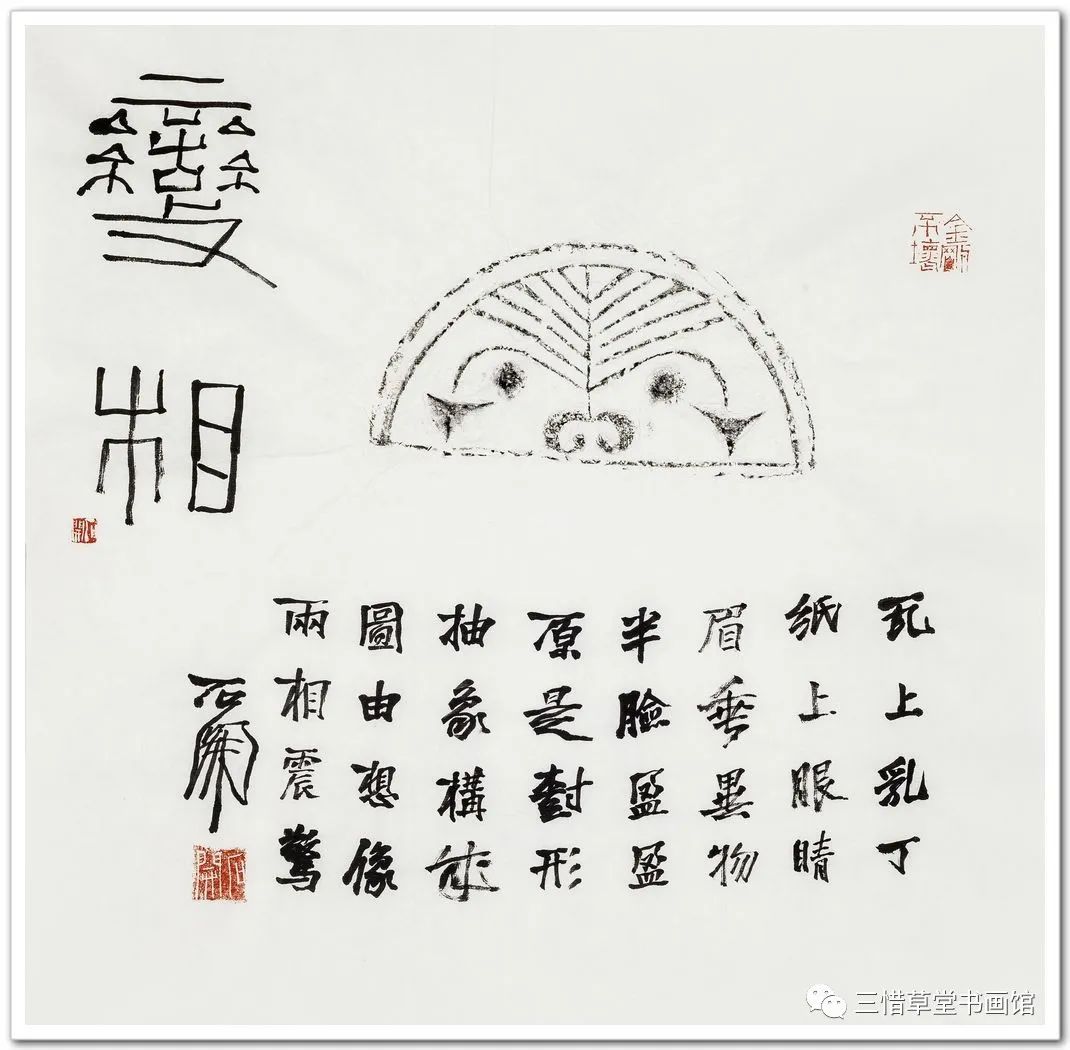 變相
金剛
不壞
瓦上乳丁
紙上眼睛
眉垂異物
半臉盈盈
原是對形
抽象構成
圖由想像
兩相震驚
石開
石開
石開
三惜草堂书画馆